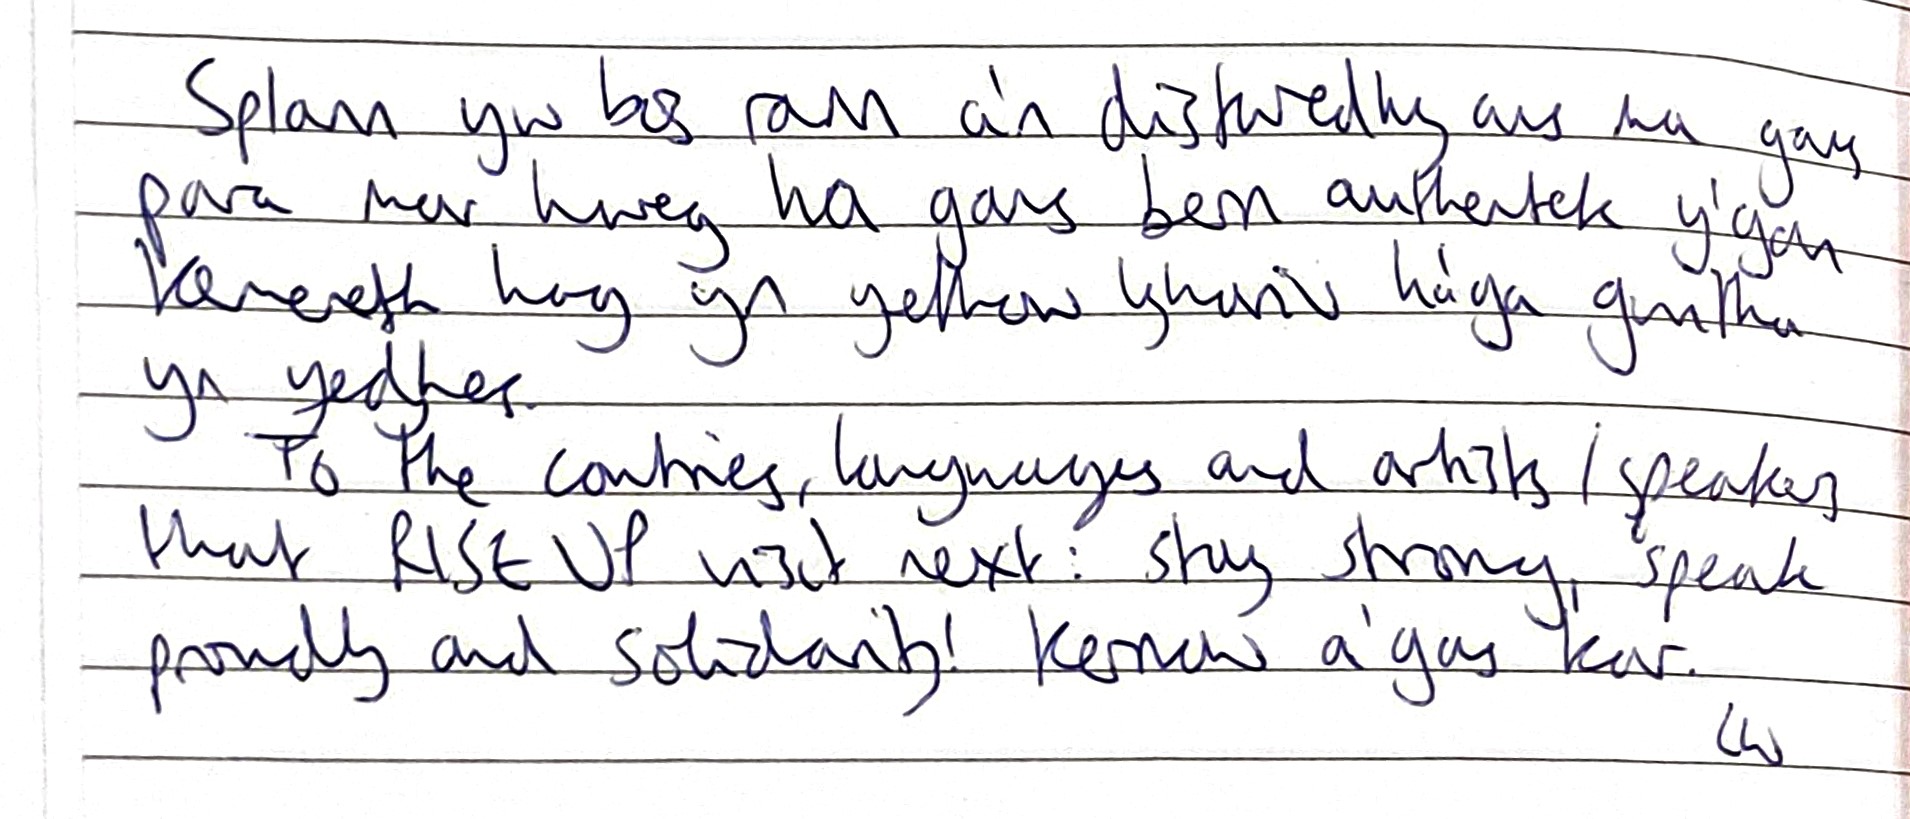 Splann yw bos rann a'n diskwedhyans ma gans
para mar hweg ha gans bern authentek y'gan
kenereth hag yn yethow
yn yedhes.
To the contries, languages and artists / speakers
that RISE UP visit next: stay strong, speak
proudly and solidarity! Kernow a'gas kar.
LW